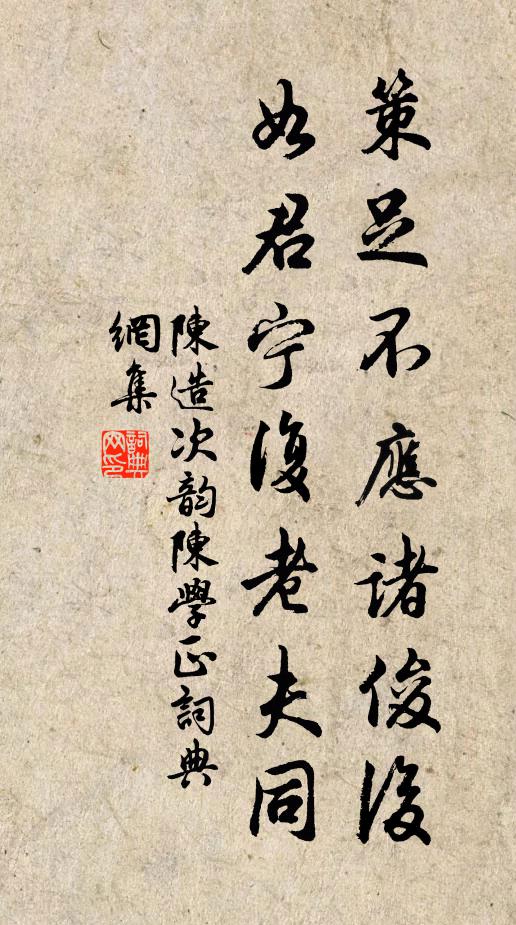 策足不應諸俊後
如君宁復老夫同
陳造次韵陳學正詞典
網集
詞典網印